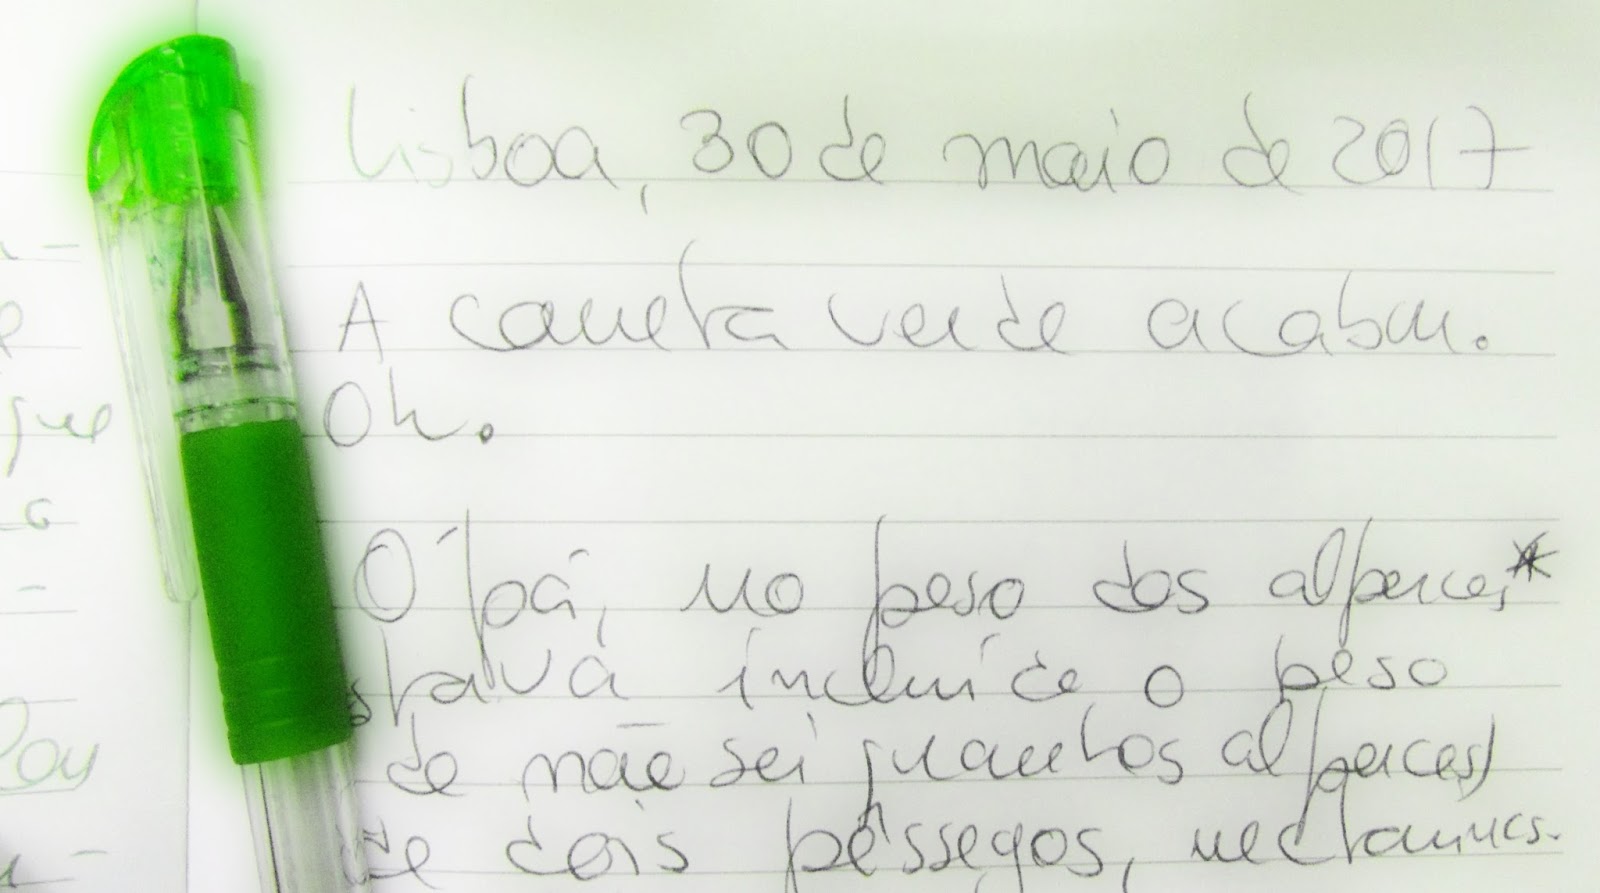 Lisboa, 30 de maio de 2017
A caneta verde acabou.
Oh.
Ó pá, no peso dos alperces*
stava incluído o peso
de não sei quantos alperces,
de dois pêssegos, nectarines.
que